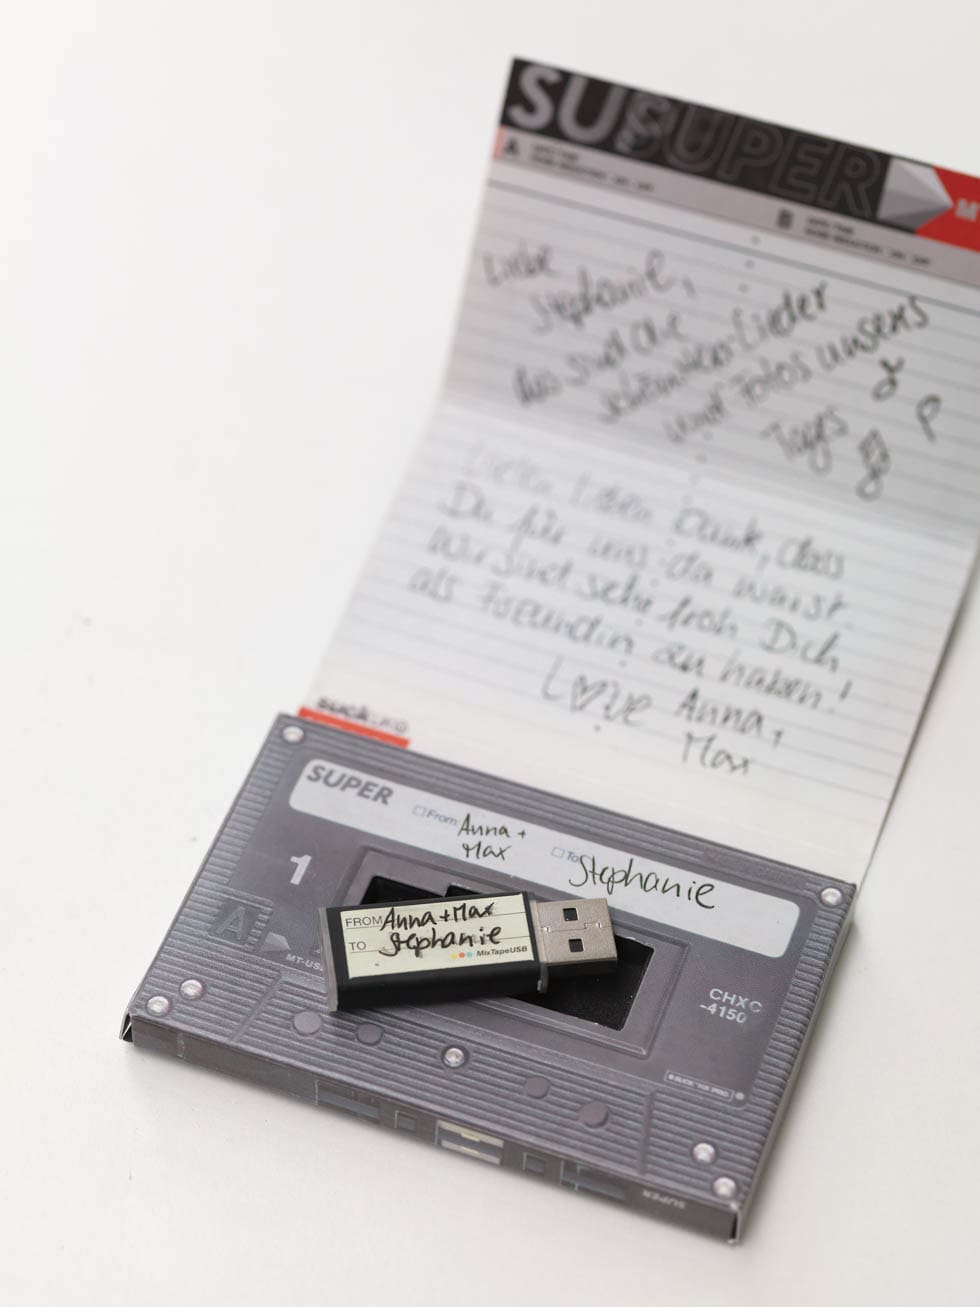 SU SUPER
A
B
Liebe
Stephanie,
das sind die
schönsten Lieder
und Fotos unseres
Tages
Vielen lieben Dank, dass
Du für uns da warst.
Wir sind sehr froh Dich
als Freundin zu haben!
Love Anna +
Max
SUCK UK
SUPER
From Anna +
Max
To Stephanie
1
A
FROM Anna + Max
TO Stephanie
MixTapeUSB
MT-US
CHXC
-4150
SUPER